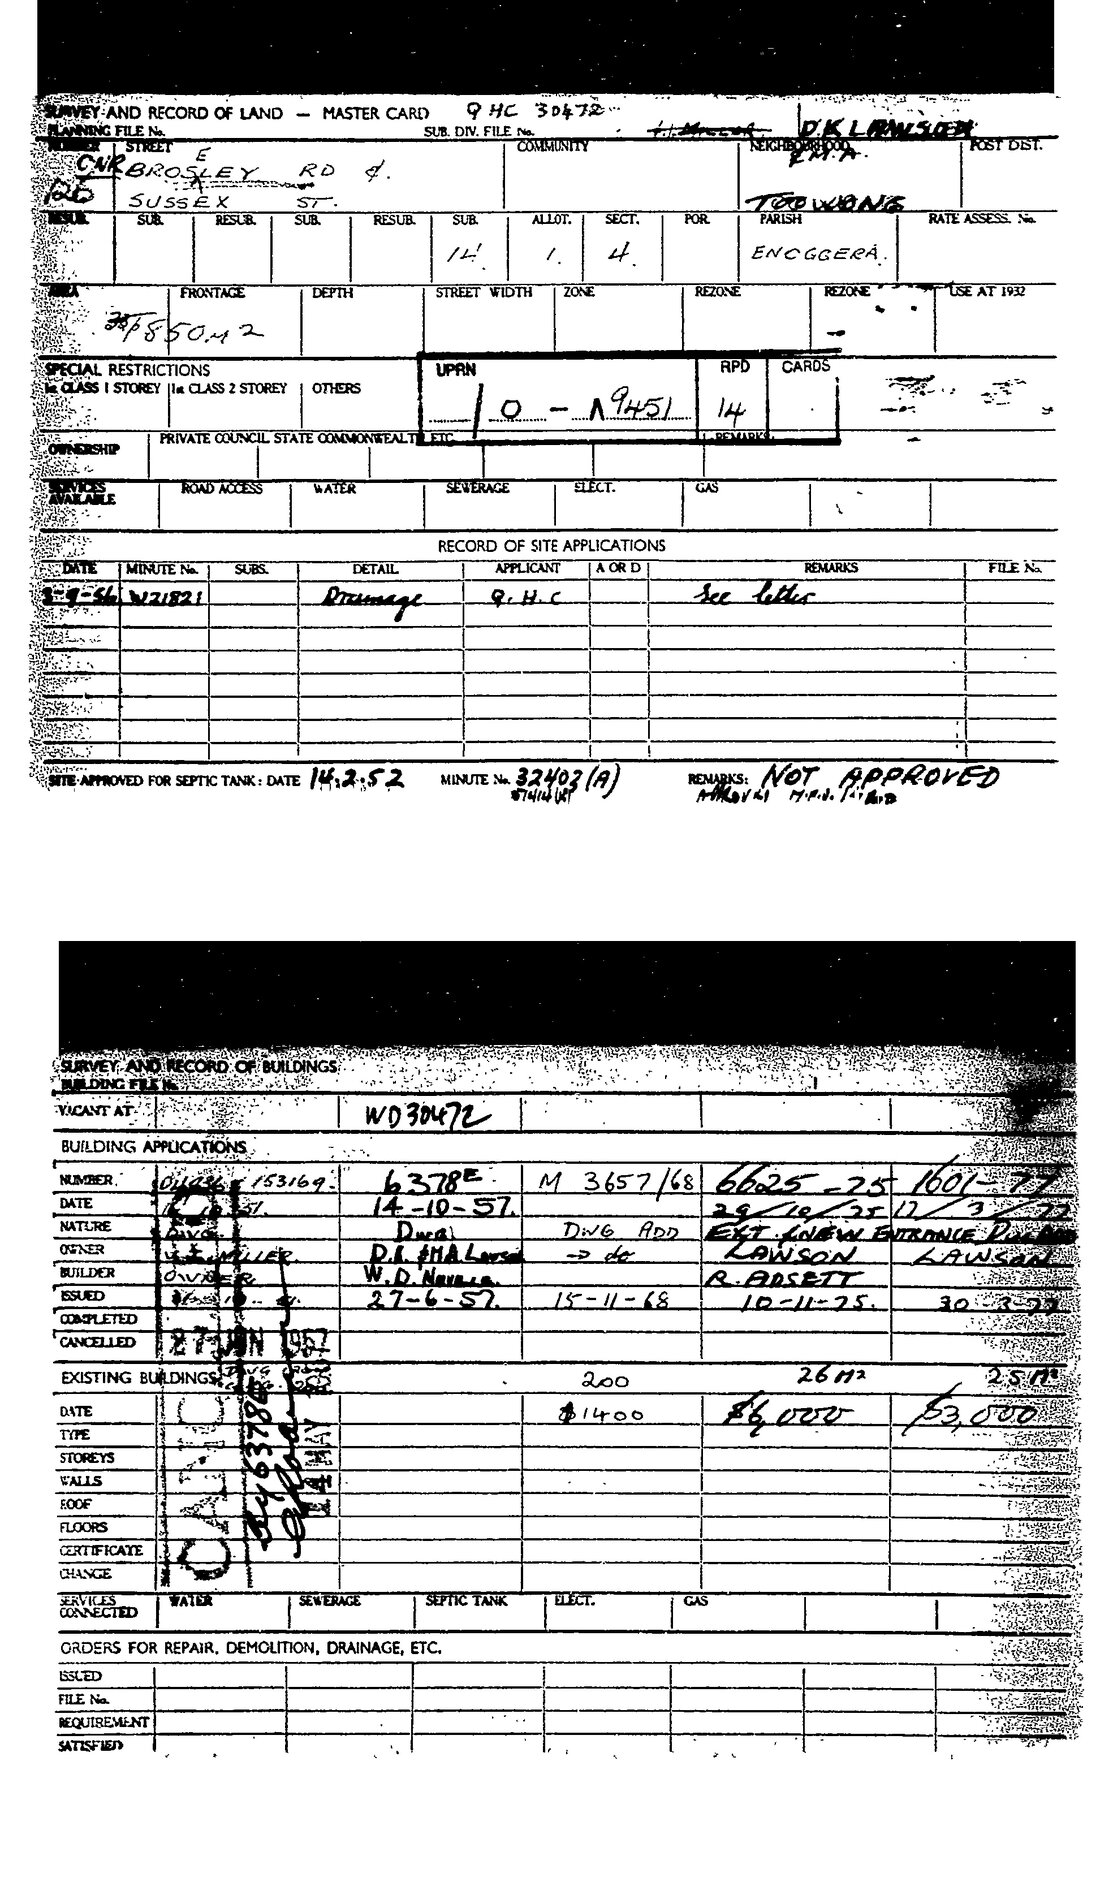 SURVEY AND RECORD OF LAND — MASTER CARD QHC 30472
PLANNING FILE No. SUB. DIV. FILE No. D.K LAWSON
NUMBER STREET COMMUNITY NEIGHBOURHOOD POST DIST.
& M.A.
CNR BROSELEY RD &
126 SUSSEX ST. TOOWONG
RESUB. SUB. RESUB. SUB. RESUB. SUB. ALLOT. SECT. POR. PARISH RATE ASSESS. No.
14 1. 4. ENOGGERA.
AREA FRONTAGE DEPTH STREET WIDTH ZONE REZONE REZONE USE AT 1932
850M2
SPECIAL RESTRICTIONS UPRN RPD CARDS
1st CLASS 1 STOREY 1st CLASS 2 STOREY OTHERS
/ 0 — 9451 14
PRIVATE COUNCIL STATE COMMONWEALTH ETC REMARKS
OWNERSHIP
SERVICES AVAILABLE ROAD ACCESS WATER SEWERAGE ELECT. GAS
RECORD OF SITE APPLICATIONS
DATE MINUTE No. SUBS. DETAIL APPLICANT A OR D REMARKS FILE No.
3-9-56 W21821 Drainage Q.H.C See letter
SITE APPROVED FOR SEPTIC TANK: DATE 14.2.52 MINUTE No. 32403(A) REMARKS: NOT APPROVED
SURVEY AND RECORD OF BUILDINGS
BUILDING FILE No.
VACANT AT WD30472
BUILDING APPLICATIONS
NUMBER 153169 6378E M 3657/68 6625-75 1601-77
DATE 14-10-57. 29/10/75 17/3/77
NATURE DWG Dwg DWG ADD EXT & NEW ENTRANCE DWG ADD
OWNER MILLER. D.K & M.A. Lawson → do LAWSON LAWSON
BUILDER OWNER W.D. R. ADSETT
ISSUED 27-6-57. 15-11-68 10-11-75. 30-3-77
COMPLETED
CANCELLED 27 JUN 1957
EXISTING BUILDINGS 200 26M² 25M²
DATE $1400 $6,000 $3,000
TYPE
STOREYS
WALLS
ROOF
FLOORS
CERTIFICATE
CHANGE
By 6378E
14 MAY
SERVICES CONNECTED WATER SEWERAGE SEPTIC TANK ELECT. GAS
ORDERS FOR REPAIR, DEMOLITION, DRAINAGE, ETC.
ISSUED
FILE No.
REQUIREMENT
SATISFIED